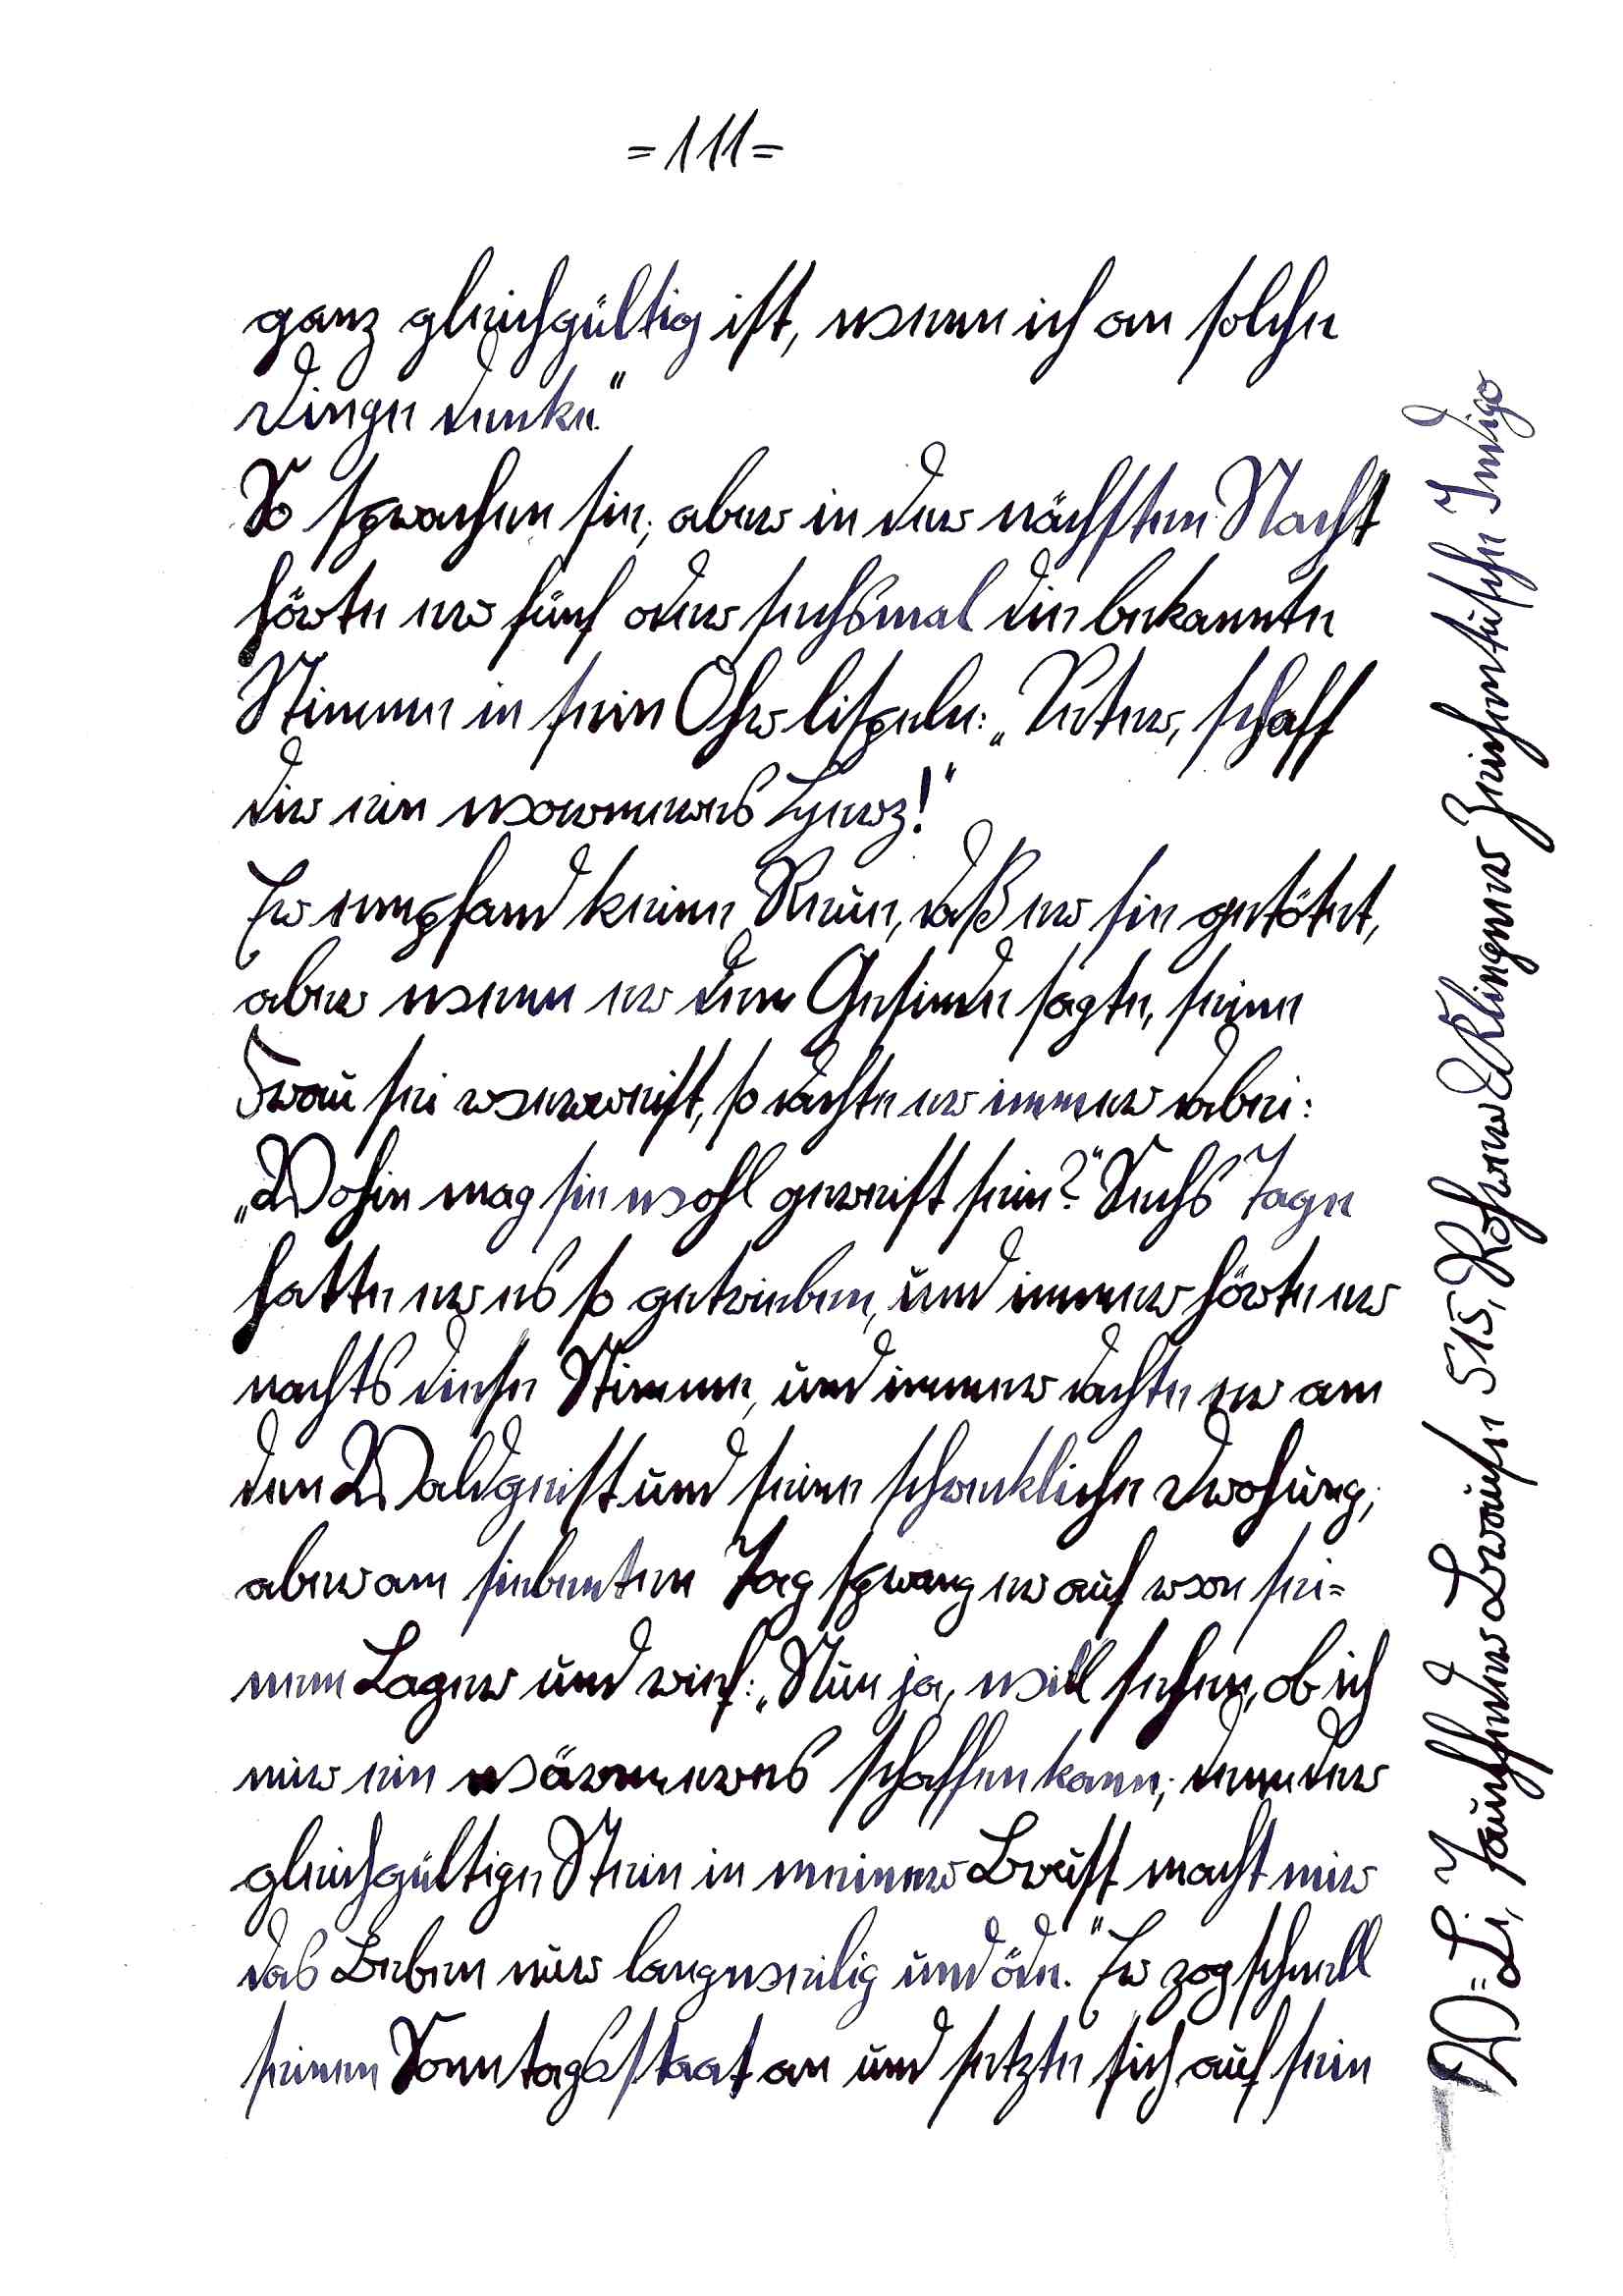 =111=
ganz gleichgültig ist, wenn ich an solche
Dinge denke."
So sprachen sie; aber in der nächsten Nacht
hörte er fünf oder sechsmal die bekannte
Stimme in sein Ohr lispeln: „Peter, schaff
dir ein warmeres Herz!"
Er empfand keine Reue, daß er sie getötet,
aber wenn er dem Gesinde sagte, seine
Frau sei verreist, so dachte er immer dabei:
„Wohin mag sie wohl gereist sein?" Sechs Tage
hatte er es so getrieben, und immer hörte er
nachts diese Stimme, und immer dachte er an
den Waldgeist und seine schreckliche Drohung;
aber am siebenten Tag sprang er auf von sei=
nem Lager und rief: „Nun ja, will sehen, ob ich
mir ein wärmeres schaffen kann; denn der
gleichgültige Stein in meiner Brust macht mir
das Leben nur langweilig und öde." Er zog schnell
seinen Sonntagsstaat an und setzte sich auf sein
515, Rohrer & Klingner Zeichentusche Indigo